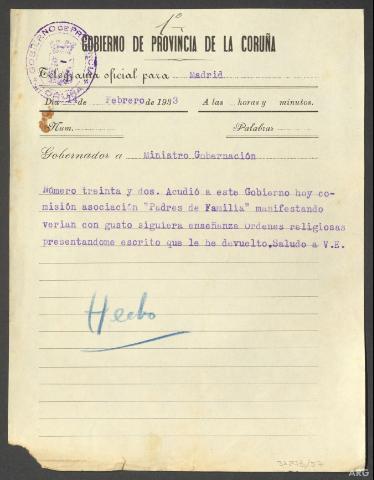 1º
GOBIERNO DE PROVINCIA DE LA CORUÑA
Telegrama oficial para Madrid
Día de Febrero de 1933 A las horas y minutos.
Núm. Palabras
Gobernador a Ministro Gobernación
Número treinta y dos. Acudió a este Gobierno hoy co-
misión asociación "Padres de Familia" manifestando
verian con gusto siguiera enseñanza Ordenes religiosas
presentandome escrito que le he devuelto.Saludo a V.E.
Hecho
ARG